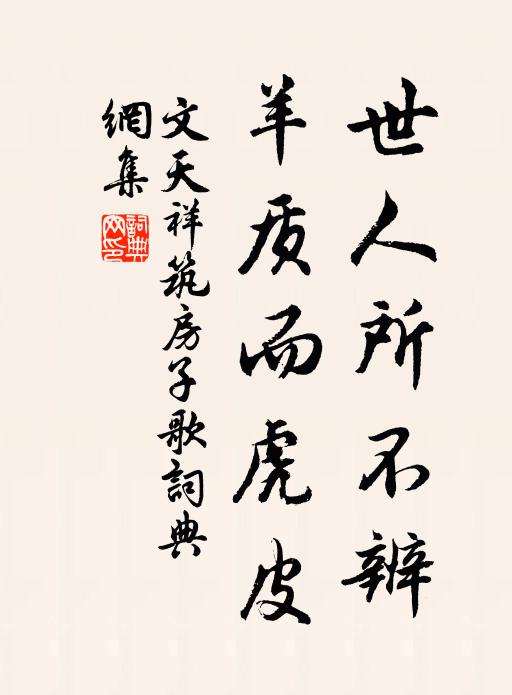 世人所不辨
羊质而虎皮
文天祥筑房子歌詞典
網集
詞典网印